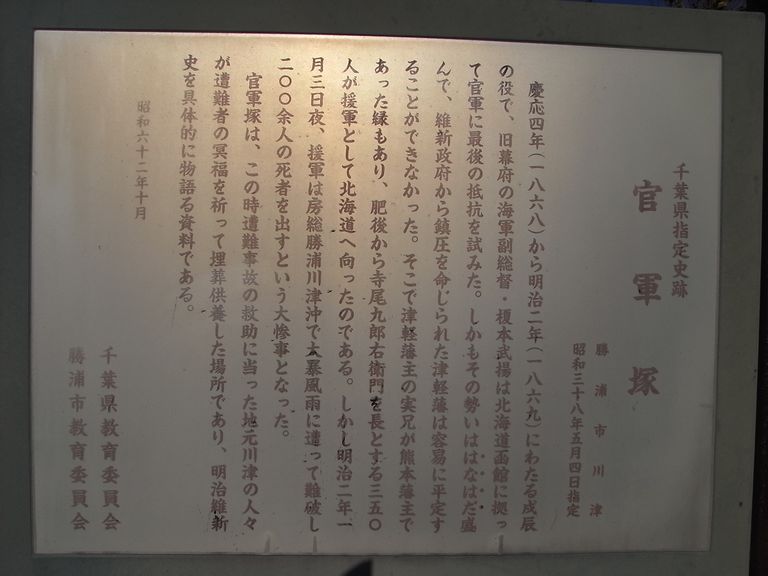 千葉県指定史跡
官軍塚
勝浦市川津
昭和三十八年五月四日指定
慶応四年(一八六八)から明治二年(一八六九)にわたる戍辰
の役で、旧幕府の海軍副総督・榎本武揚は北海道函館に拠っ
て官軍に最後の抵抗を試みた。しかもその勢いははなはだ盛
んで、維新政府から鎮圧を命じられた津軽藩は容易に平定す
ることができなかった。そこで津軽藩主の実兄が熊本藩主で
あった縁もあり、肥後から寺尾九郎右衛門を長とする三五〇
人が援軍として北海道へ向ったのである。しかし明治二年一
月三日夜、援軍は房総勝浦川津沖で大暴風雨に遭って難破し
二〇〇余人の死者を出すという大惨事となった。
官軍塚は、この時遭難事故の救助に当った地元川津の人々
が遭難者の冥福を祈って埋葬供養した場所であり、明治維新
史を具体的に物語る資料である。
昭和六十二年十月
千葉県教育委員会
勝浦市教育委員会